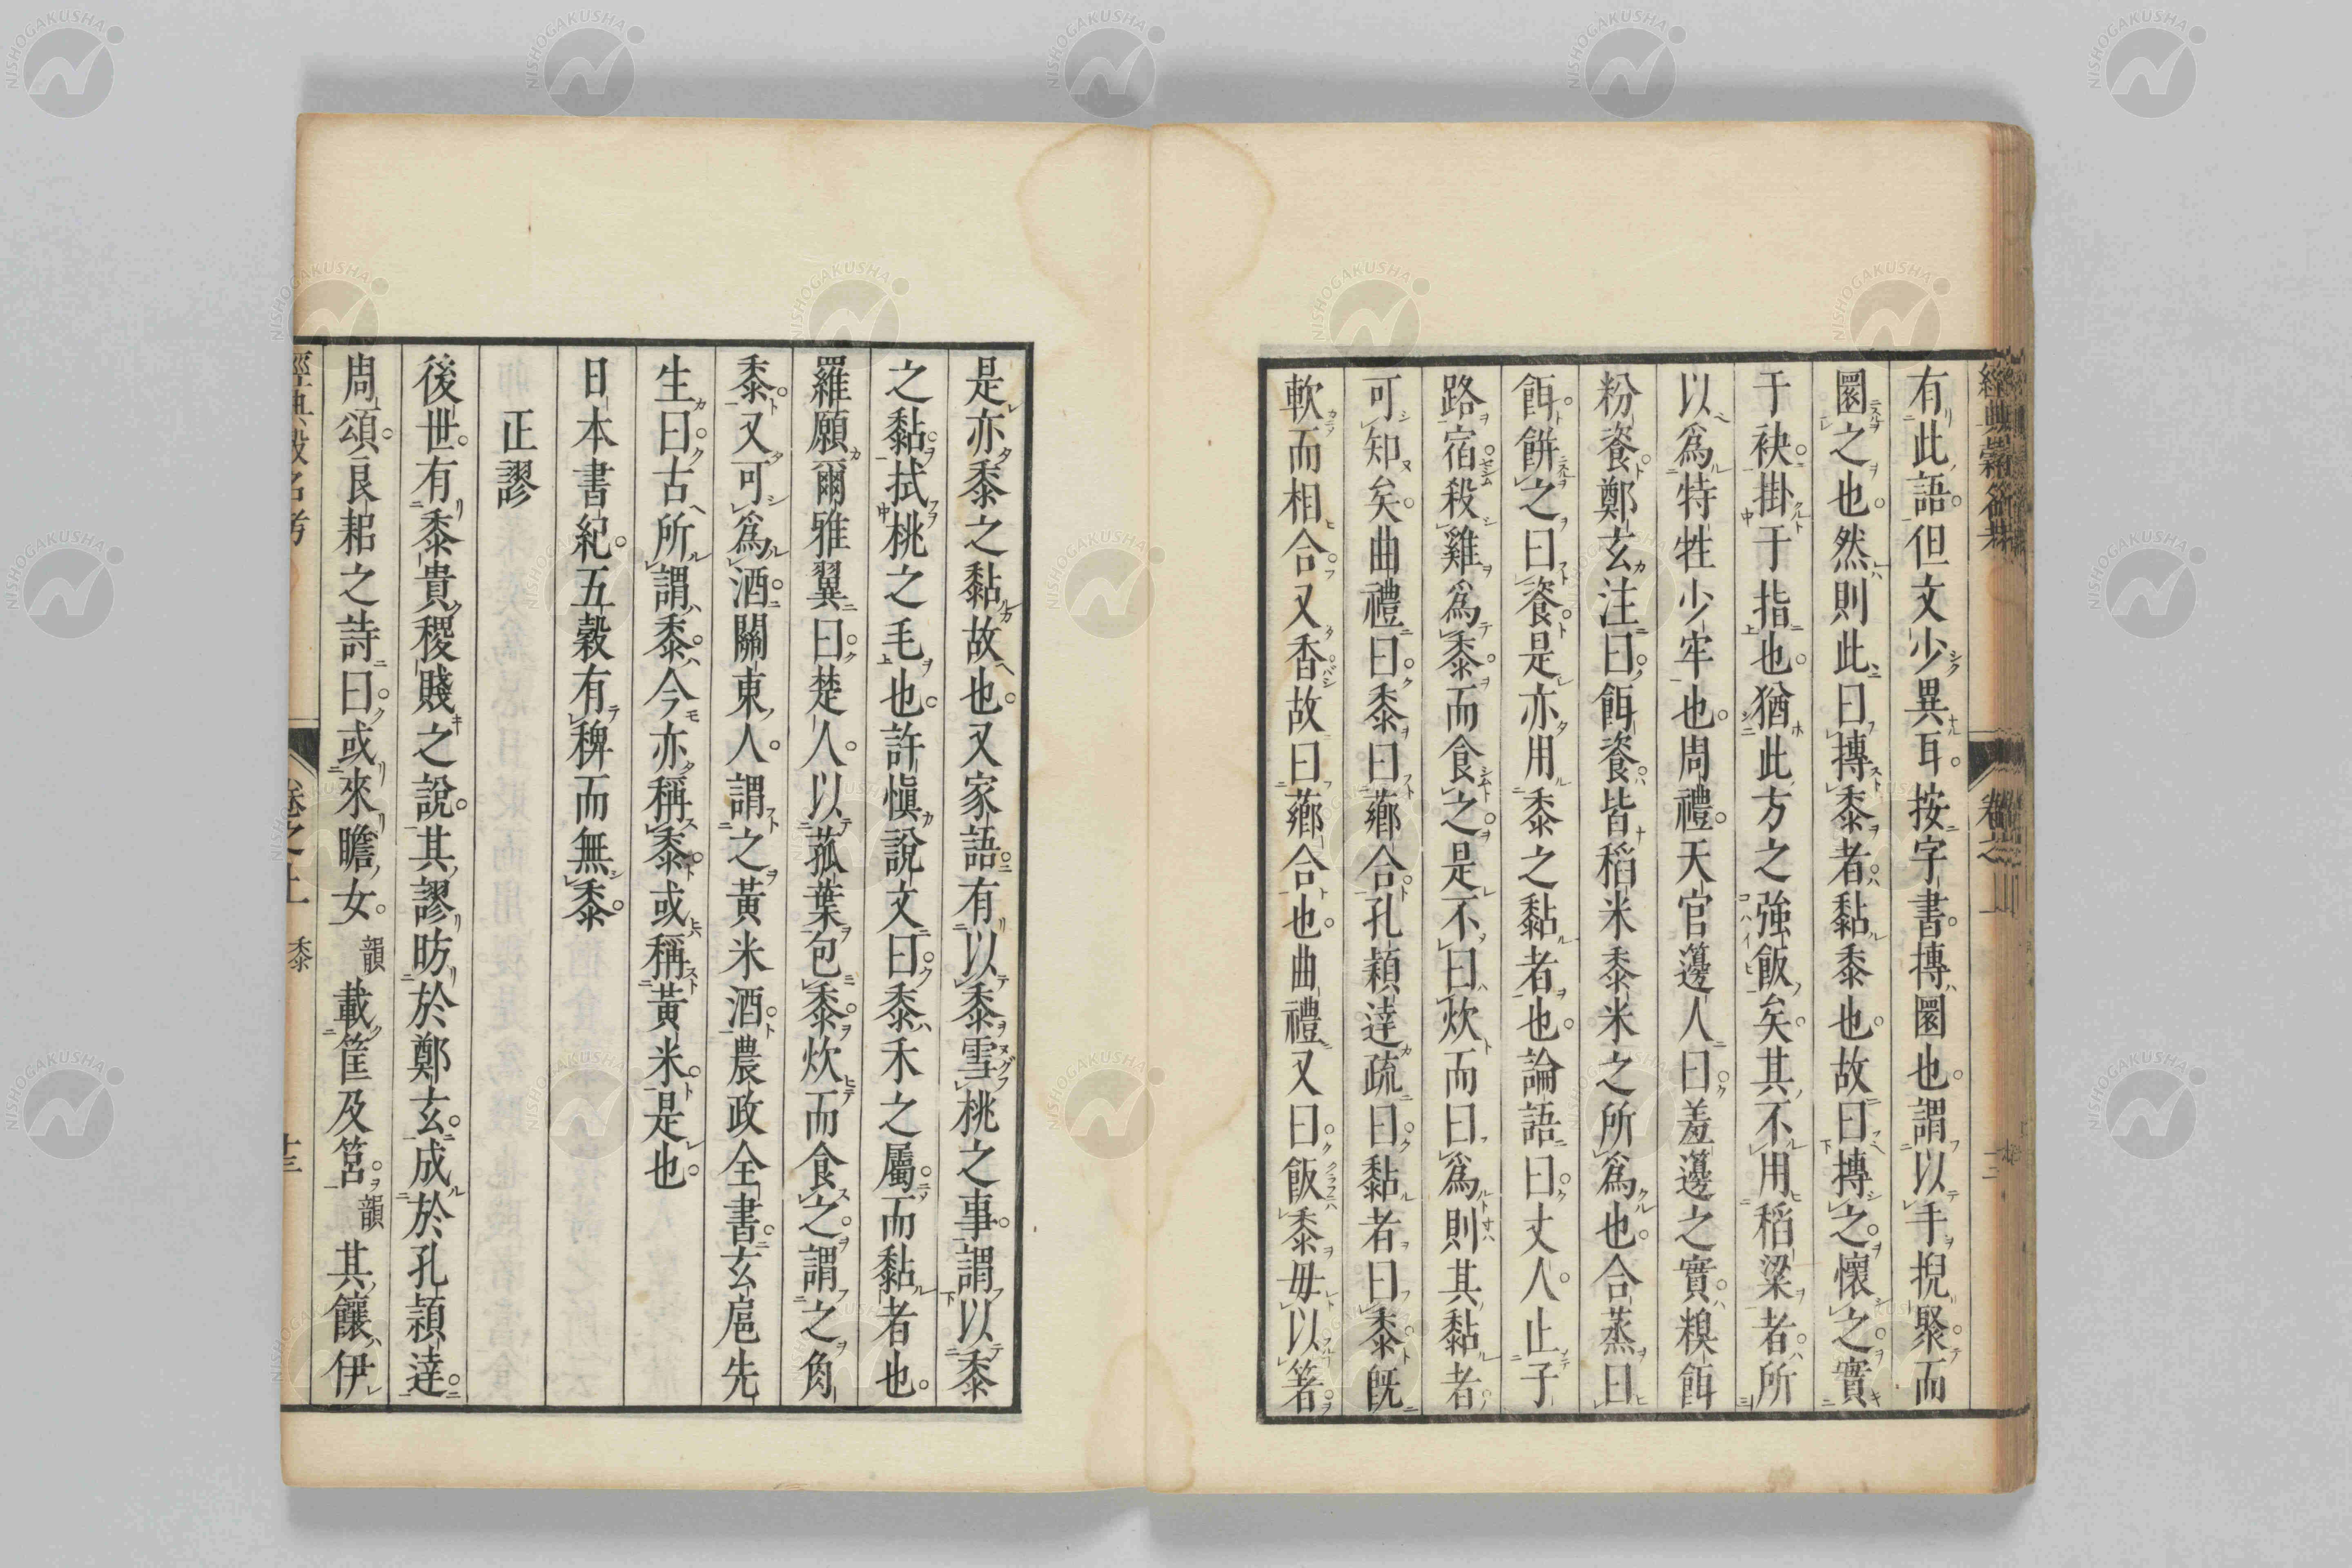 有此語但文少異耳按字書摶圜也謂以手捏聚而
圜之也然則此曰摶黍者黏黍也故曰摶之懷之實
于袂掛于指也猶此方之強飯矣其不用稻粱者所
以爲特牲少牢也周禮天官籩人曰羞籩之實糗餌
粉餈鄭玄注曰餌餈皆稻米黍米之所爲也合蒸曰
餌餅之曰餈是亦用黍之黏者也論語曰丈人止子
路宿殺雞爲黍而食之是不曰炊而曰爲則其黏者
可知矣曲禮曰黍曰薌合孔穎達疏曰黏者曰黍既
軟而相合又香故曰薌合也曲禮又曰飯黍毋以箸
是亦黍之黏故也又家語有以黍雪桃之事謂以黍
之黏拭桃之毛也許愼說文曰黍禾之屬而黏者也
羅願爾雅翼曰楚人以菰葉包黍炊而食之謂之角
黍又可爲酒關東人謂之黃米酒農政全書玄扈先
生曰古所謂黍今亦稱黍或稱黃米是也
日本書紀五穀有稗而無黍
正謬
後世有黍貴稷賤之說其謬昉於鄭玄成於孔穎達
周頌良耜之詩曰或來瞻女韻載筐及筥韻其饟伊
經典穀名考
卷之上
黍
十三